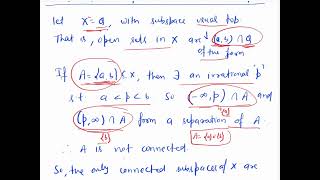 let X = Q, with subspace usual top.
That is, open sets in X are (a, b) ∩ Q
of the form
If A = {a, b} ⊂ X, then ∃ an irrational 'p'
s.t. a < p < b. So (-∞, p) ∩ A and
{a}
(p, ∞) ∩ A form a separation of A.
{b}
A = {a} ∪ {b}
∴ A is not connected.
So, the only connected subspaces of X are